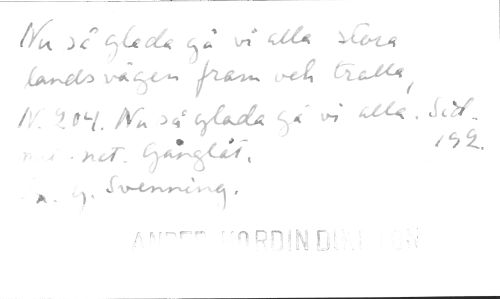 Nu så glada gå vi alla stora
landsvägen fram och tralla,
N. 204. Nu så glada gå vi alla. Sid.
not. Gånglåt. 192.
G. Svenning.
NORDIN